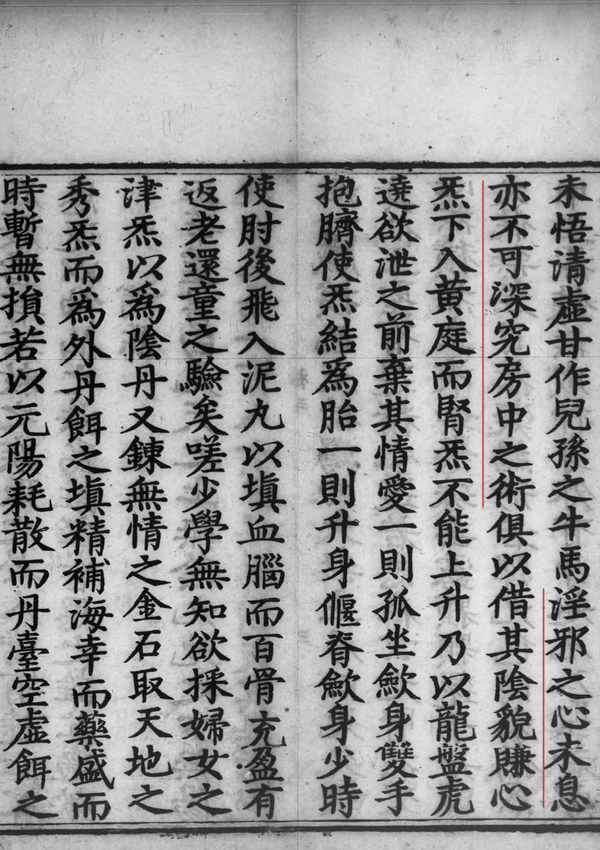 未悟清虛甘作兒孫之牛馬淫邪之心未息
亦不可深究房中之術俱以借其陰貌賺心
炁下入黃庭而腎炁不能上升乃以龍盤虎
遶欲泄之前棄其情愛一則孤坐歛身雙手
抱臍使炁結為胎一則升身偃脊歛身少時
使肘後飛入泥丸以塡血腦而百骨充盈有
返老還童之驗矣嗟少學無知欲採婦女之
津炁以為陰丹又鍊無情之金石取天地之
秀炁而為外丹餌之塡精補海幸而藥盛而
時暫無損若以元陽耗散而丹臺空虛餌之